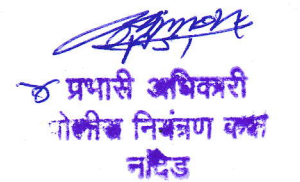 प्रभासी अधिकारी
पोलीस नियंत्रण कक्ष
नांदेड